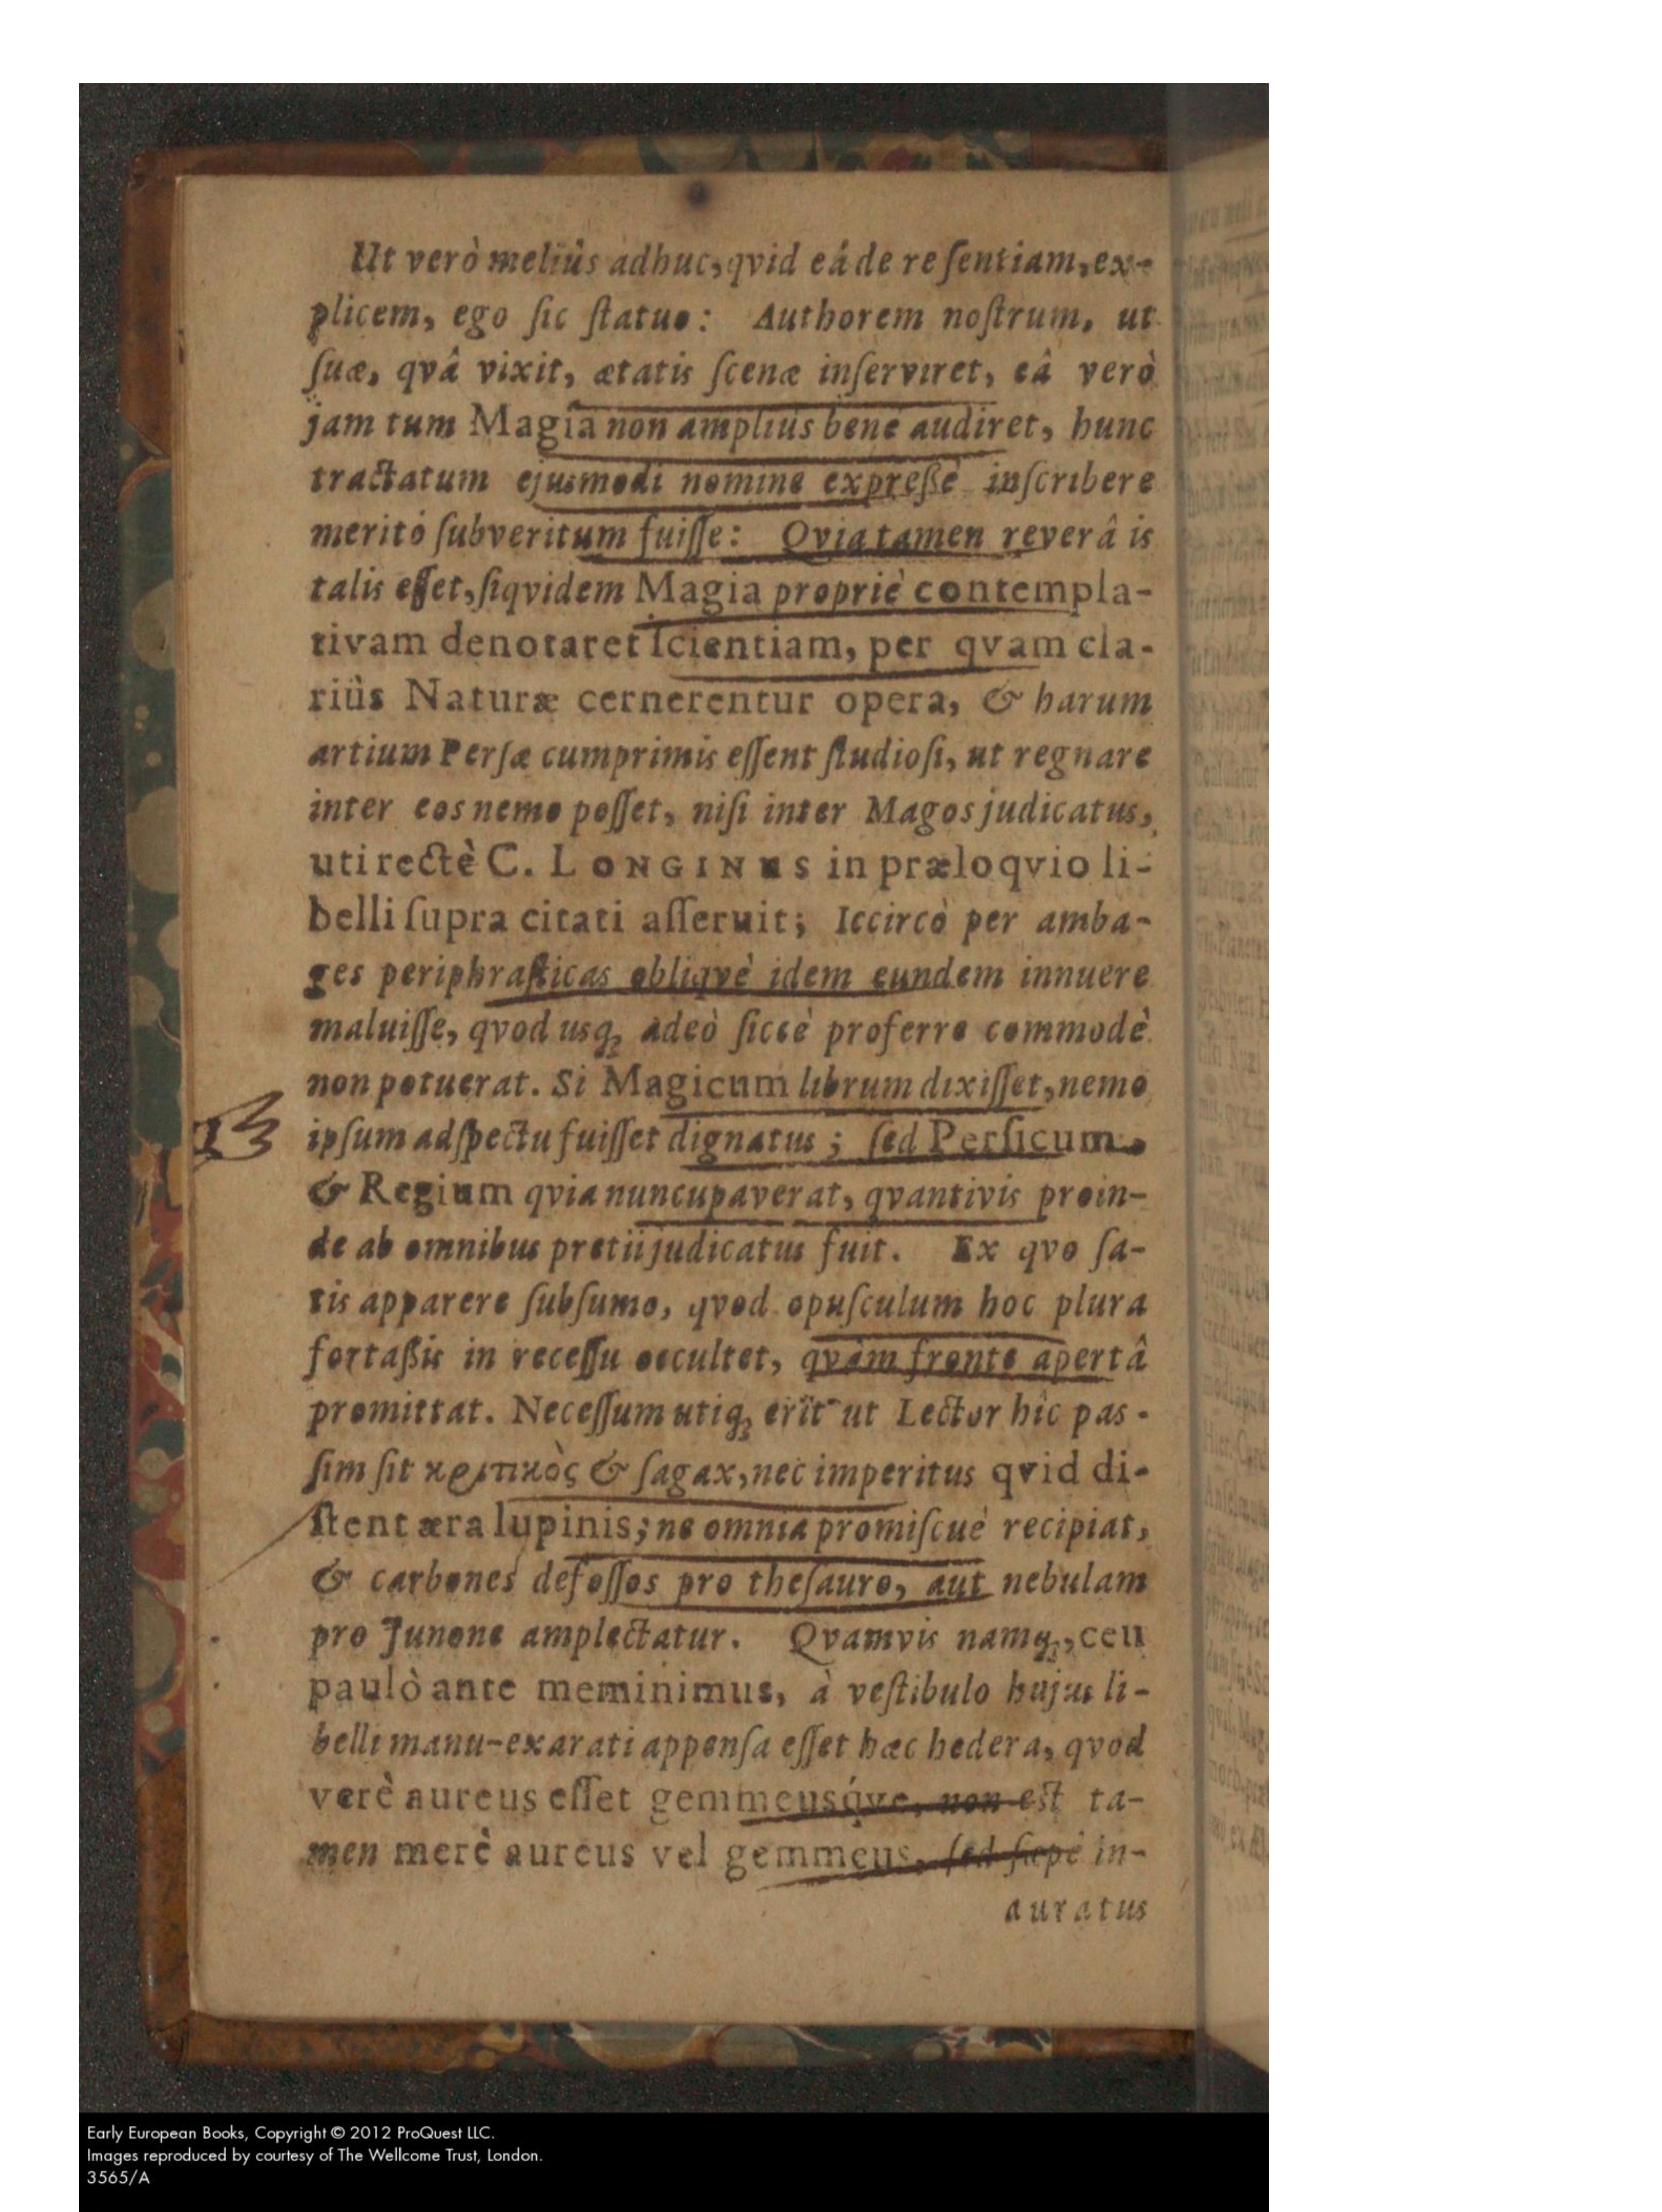 Ut verò meliùs adhuc, qvid eâ de re ſentiam, ex-
plicem, ego ſic ſtatuo: Authorem noſtrum, ut
ſuæ, qvâ vixit, ætatis ſcenæ inſerviret, eâ verò
jam tum Magia non ampliùs benè audiret, hunc
tractatum ejusmodi nomine expreßè inſcribere
meritò ſubveritum fuiſſe: Qvia tamen reverâ is
talis eſſet, ſiqvidem Magia propriè contempla-
tivam denotaret ſcientiam, per qvam cla-
riùs Naturæ cernerentur opera, & harum
artium Perſæ cumprimis eſſent ſtudioſi, ut regnare
inter eos nemo poſſet, niſi inter Magos judicatus,
uti rectè C. LONGINUS in præloqvio li-
belli ſupra citati aſſeruit; Iccircò per amba-
ges periphraſticas obliqvè idem eundem innuere
maluiſſe, qvod usq; adeò ſiccè proferre commodè
non potuerat. Si Magicum librum dixiſſet, nemo
ipſum adſpectu fuiſſet dignatus; ſed Perſicum
& Regium qvia nuncupaverat, qvantivis proin-
de ab omnibus pretii judicatus fuit. Ex qvo ſa-
tis apparere ſubſumo, qvod opuſculum hoc plura
fortaßis in receſſu occultet, qvàm fronte apertâ
promittat. Neceſſum utiq; erit ut Lector hîc pas-
ſim ſit κριτικὸς & ſagax, nec imperitus qvid di-
ſtent æra lupinis; ne omnia promiſcuè recipiat,
& carbones defoſſos pro theſauro, aut nebulam
pro Junone amplectatur. Qvamvis namq;, ceu
paulò ante meminimus, à veſtibulo hujus li-
belli manu-exarati appenſa eſſet hæc hedera, qvod
verè aureus eſſet gemmeusq́ve, non eſt ta-
men merè aureus vel gemmeus, ſed ſæpè in-
auratus
Early European Books, Copyright © 2012 ProQuest LLC.
Images reproduced by courtesy of The Wellcome Trust, London.
3565/A